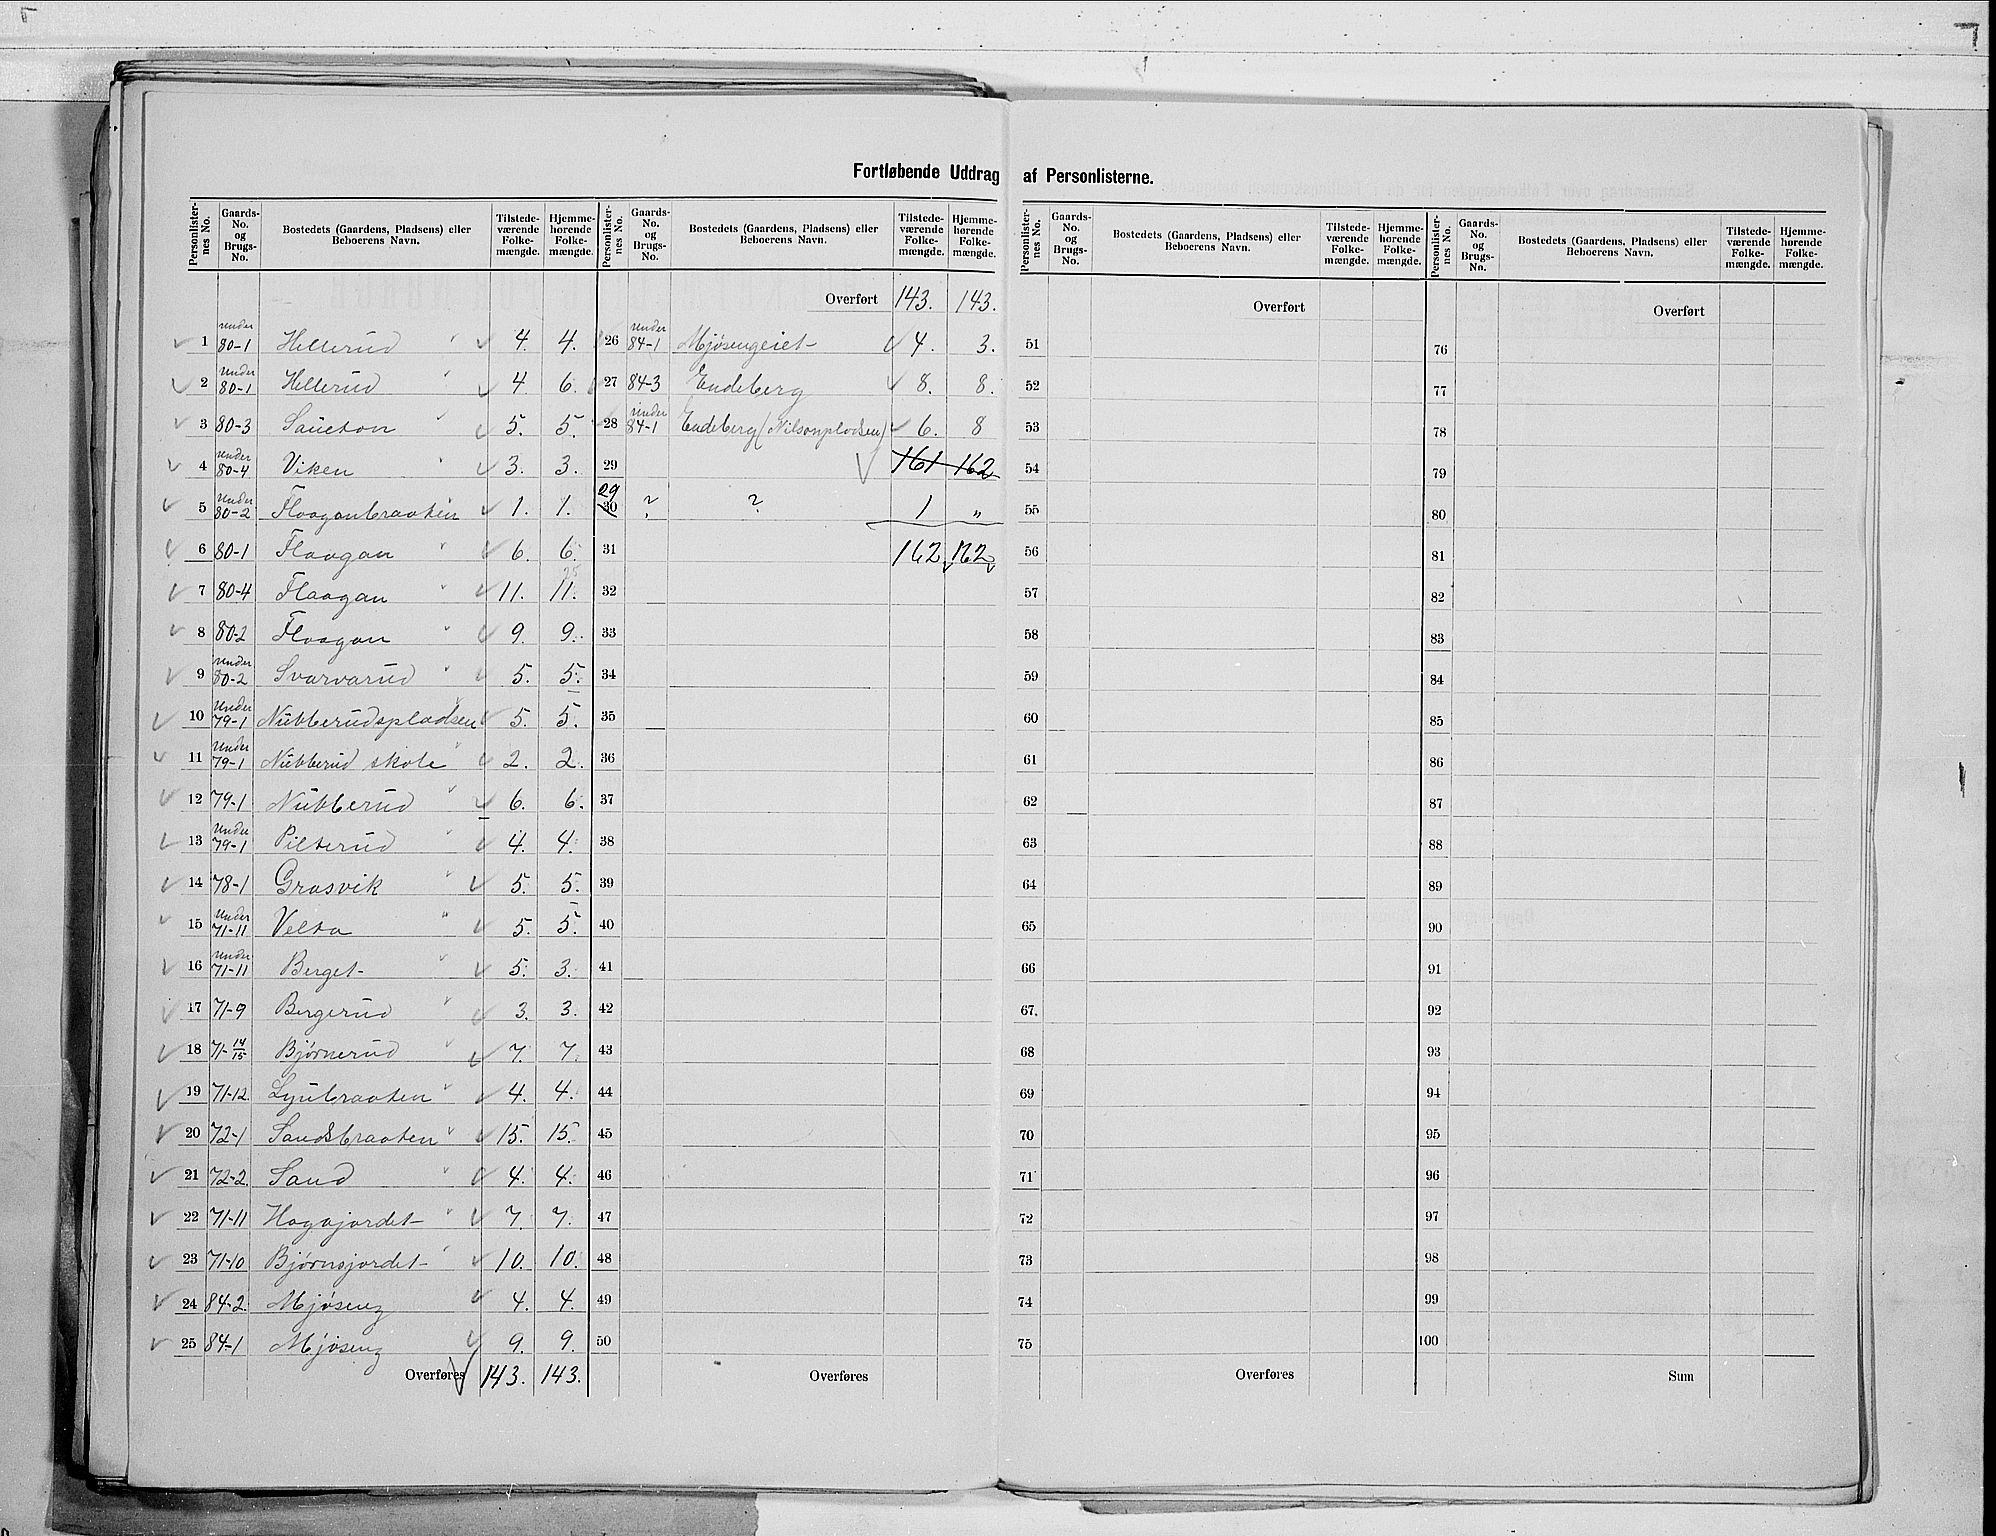 Fortløbende Uddrag af Personlisternes.
Personlister-nes No. Gaards-No. og Brugs-No. Bostedets (Gaardens, Pladsens) eller Beboerens Navn. Tilstede-værende Folke-mængde. Hjemme-hørende Folke-mængde.
1 under 80-1 Hellerud 4. 4.
2 under 80-1 Hellerud 4 6.
3 80-3 Saueton 5. 5.
4 under 80-4 Viken 3. 3.
5 under 80-2 Flaaganbraaten 1. 1.
6 80-1 Flaagan 6. 6.
7 80-4 Flaagan 11. 11.
8 80-2 Flaagan 9. 9.
9 under 80-2 Svarvarud 5. 5.
10 under 79-1 Nübberudspladsen 5. 5.
11 under 79-1 Nübberud skole 2. 2.
12 79-1 Nübberud 6. 6.
13 under 79-1 Pilterud 4. 4.
14 78-1 Grasvik 5. 5.
15 under 71-11 Velta 5. 5.
16 under 71-11 Berget 5. 3.
17 71-9 Bergerud 3. 3.
18 71-14/15 Bjørnerud 7. 7.
19 71-12. Lyubraaten 4. 4.
20 72-1 Sandsbraaten 15. 15.
21 72-2. Sand 4. 4.
22 71-11 Hagajordet 7. 7.
23 71-10 Bjørnsjordet 10. 10.
24 84-2. Mjøseng 4. 4.
25 84-1 Mjøseng 9. 9.
Overføres 143. 143.
Personlister-nes No. Gaards-No. og Brugs-No. Bostedets (Gaardens, Pladsens) eller Beboerens Navn. Tilstede-værende Folke-mængde. Hjemme-hørende Folke-mængde.
Overført 143. 143.
26 under 84-1 Mjøsengeiet 4. 3.
27 84-3 Endeberg 8. 8.
28 under 84-1 Endeberg (Nilsonpladsen) 6. 8
29 161 162
29 30 ? ? 1 "
31 162 162
32
33
34
35
36
37
38
39
40
41
42
43
44
45
46
47
48
49
50
Overføres
Personlister-nes No. Gaards-No. og Brugs-No. Bostedets (Gaardens, Pladsens) eller Beboerens Navn. Tilstede-værende Folke-mængde. Hjemme-hørende Folke-mængde.
Overført
51
52
53
54
55
56
57
58
59
60
61
62
63
64
65
66
67.
68
69
70
71
72
73
74
75
Overføres
Personlister-nes No. Gaards-No. og Brugs-No. Bostedets (Gaardens, Pladsens) eller Beboerens Navn. Tilstede-værende Folke-mængde. Hjemme-hørende Folke-mængde.
Overført
76
77
78
79
80
81
82
83
84
85
86
87
88
89
90
91
92
93
94
95
96
97
98
99
100
Sum